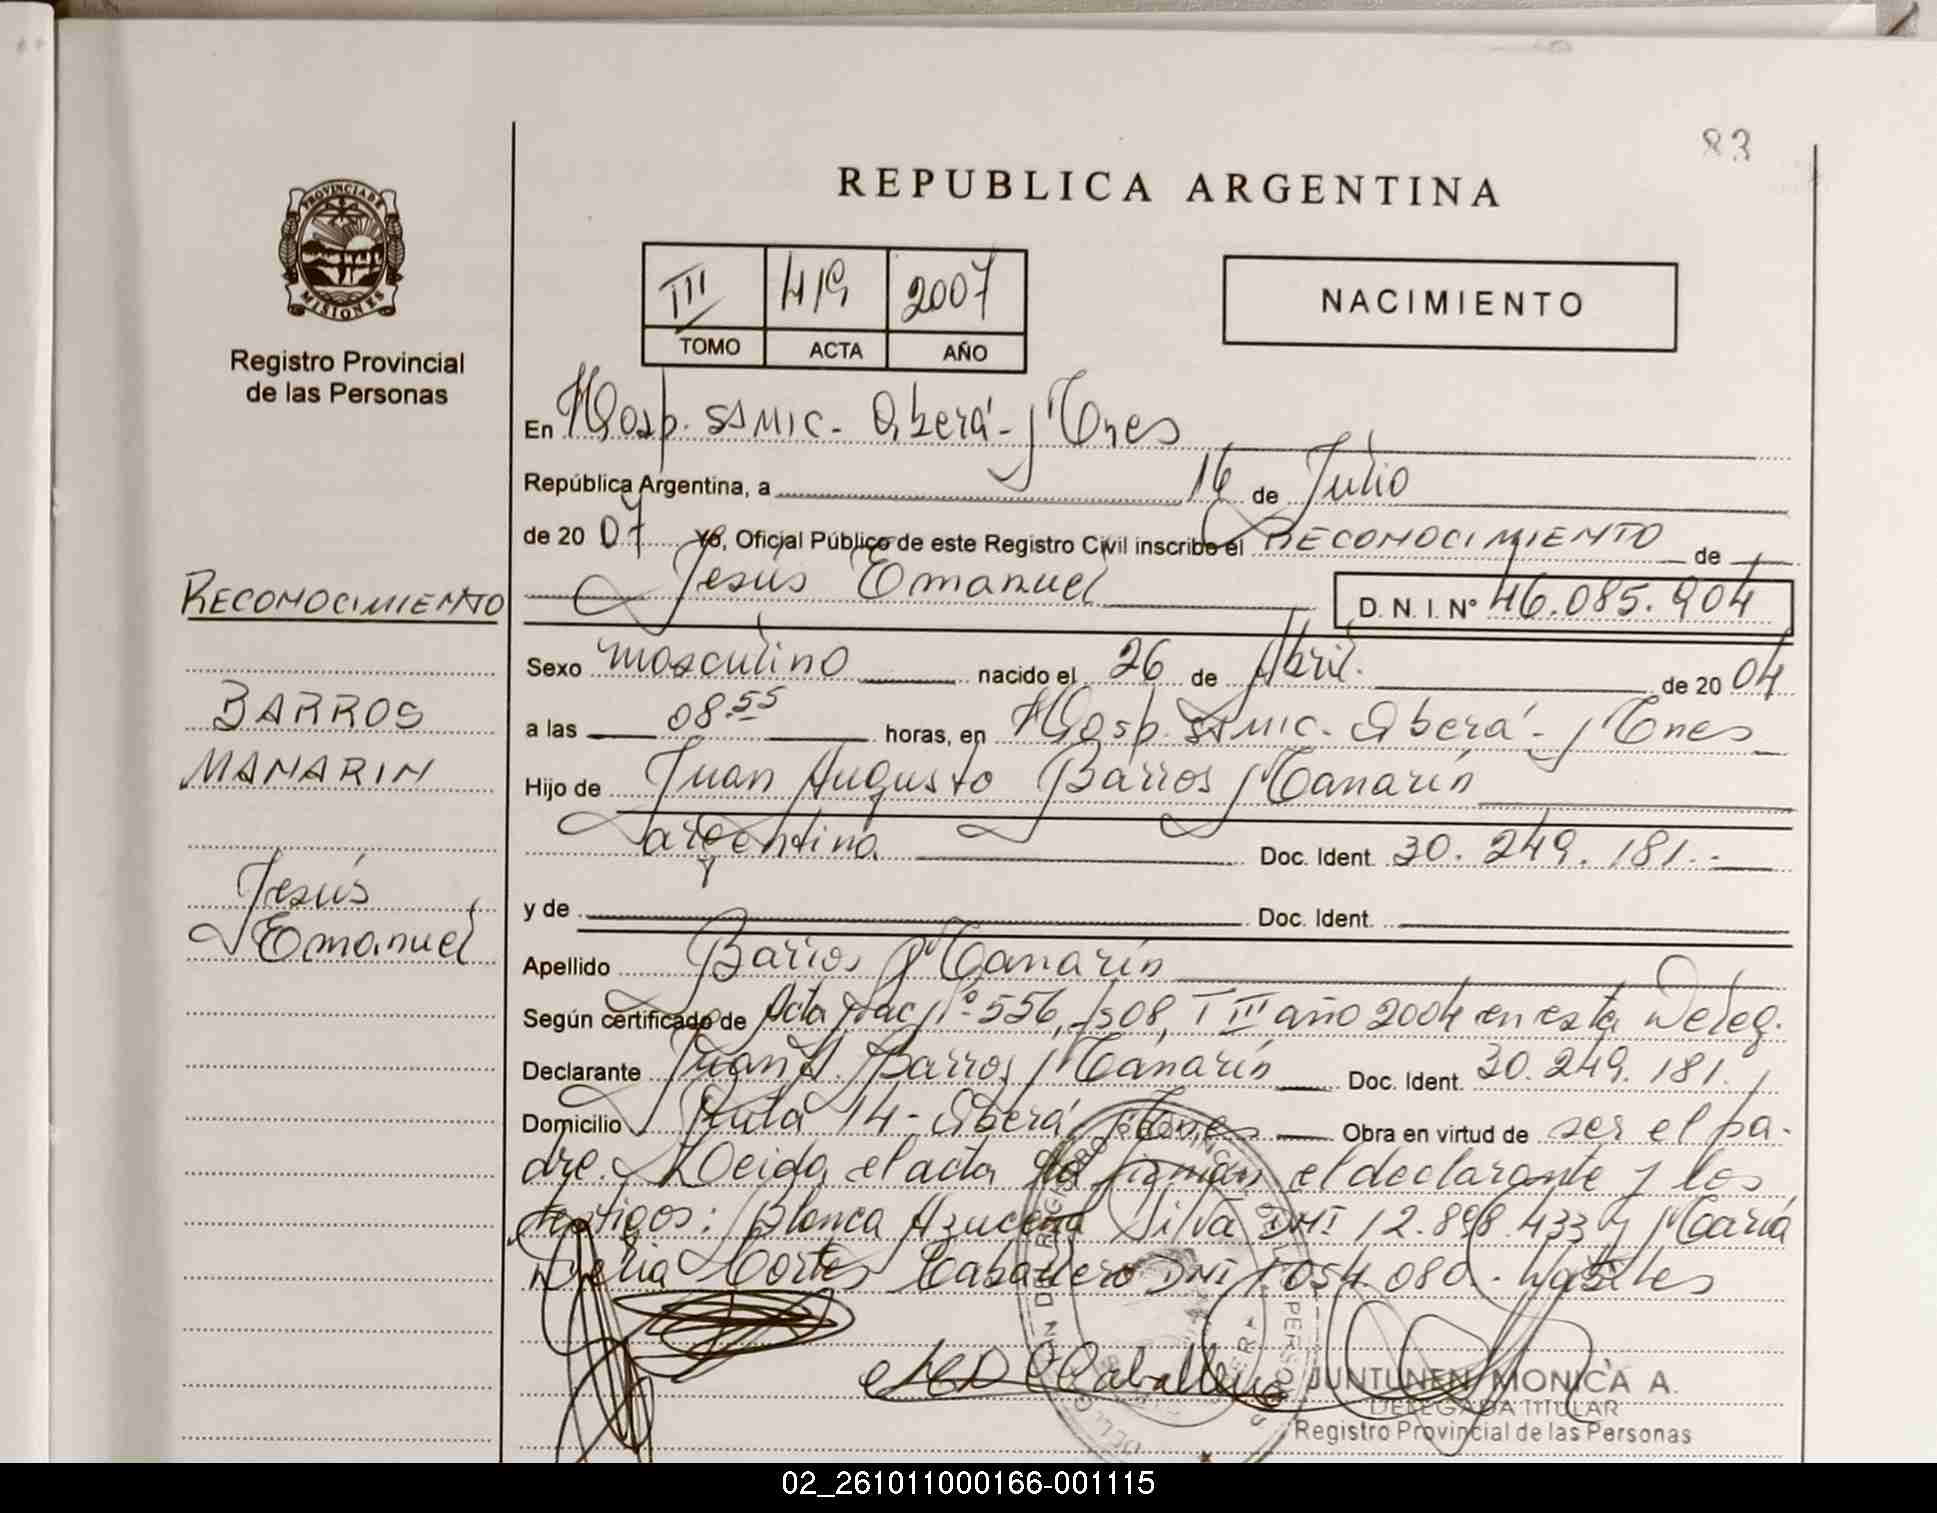 83
REPUBLICA ARGENTINA
PROVINCIA DE
MISIONES
Registro Provincial
de las Personas
III 419 2007
TOMO ACTA AÑO
NACIMIENTO
En Hosp. SAMIC. Oberá - Mnes
República Argentina, a 16 de Julio
de 20 07 Yo, Oficial Público de este Registro Civil inscribo el RECONOCIMIENTO de
Jesús Emanuel D. N. I. N° 46.085.904
RECONOCIMIENTO
Sexo masculino nacido el 26 de Abril. de 20 04
BARROS
a las 08.55 horas, en Hosp. SAMIC. Oberá - Mnes
MANARIN
Hijo de Juan Augusto Barros Manarín
argentina Doc. Ident. 30.249.181.-
Jesús
Emanuel
y de Doc. Ident.
Apellido Barros Manarín
Según certificado de Acta Nac N° 556, f 308, T III año 2004 en esta Deleg.
Declarante Juan A. Barros Manarín Doc. Ident. 30.249.181.
Domicilio Ruta 14 - Oberá, Mnes Obra en virtud de ser el pa-
dre. Leida el acta la firman el declarante y los
testigos: Blanca Azucena Silva DNI 12.898.433 y María
Delia Cortes Caballero DNI 054.080. hábiles
Caballero
JUNTUNEN MONICA A.
DELEGADA TITULAR
Registro Provincial de las Personas
02_261011000166-001115